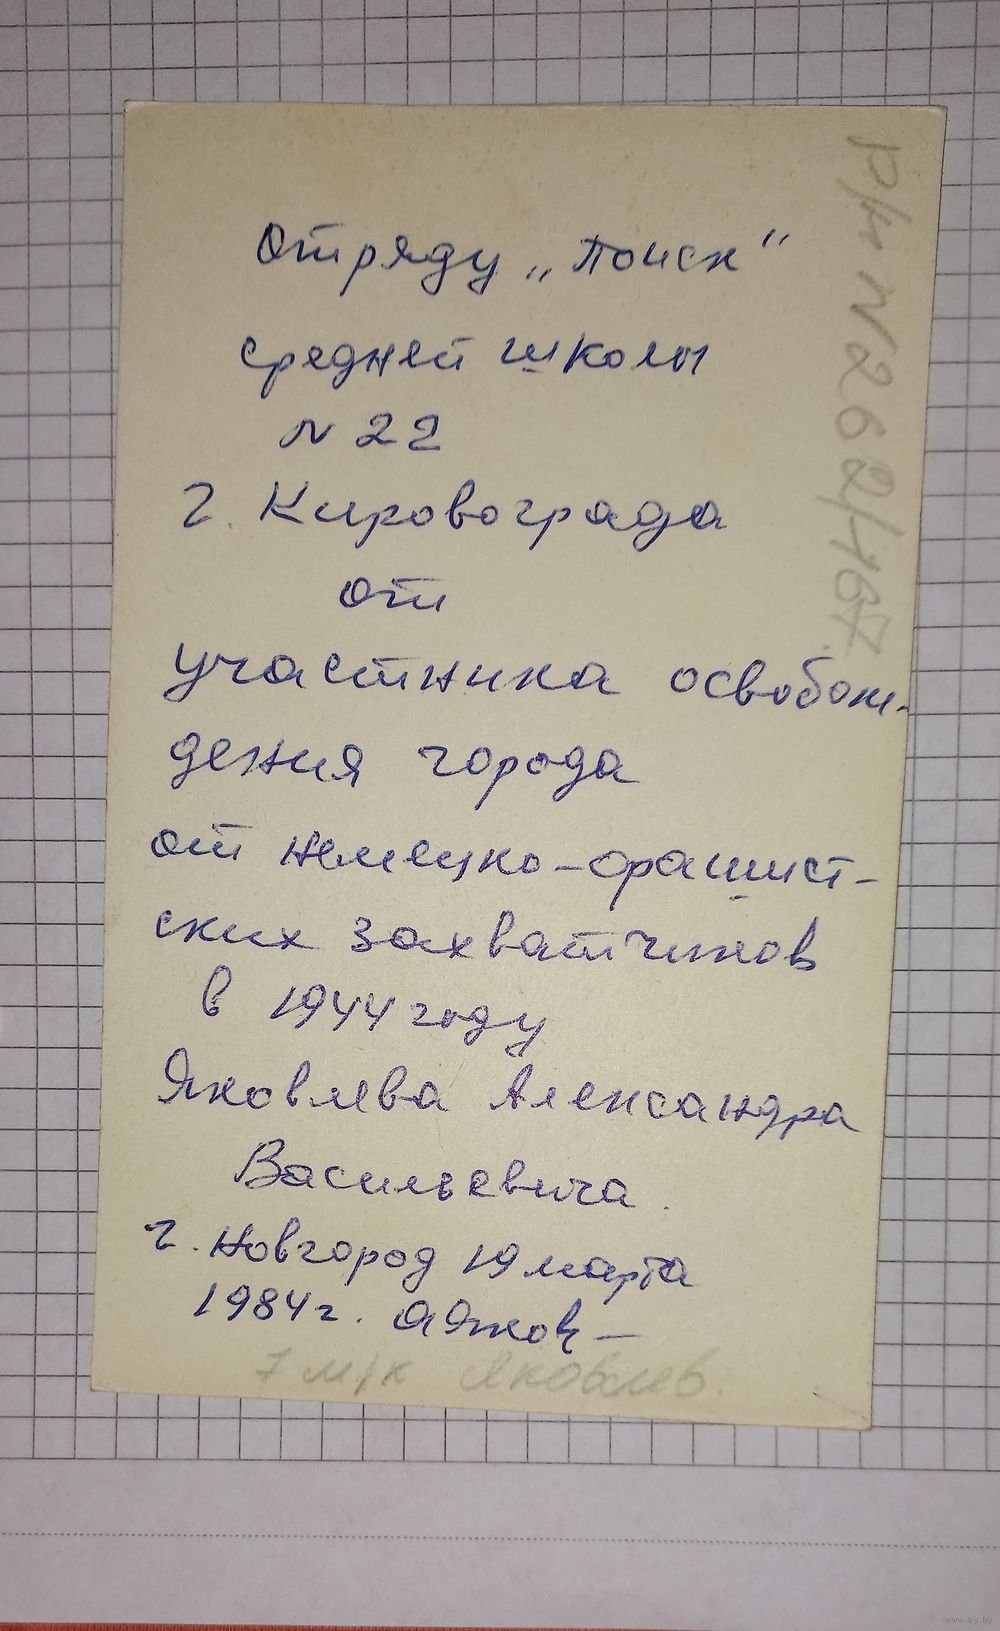 Отряду „Поиск"
средней школы
N 22
г. Кировограда
от
участника освобож-
дения города
от немецко-фашист-
ских захватчиков
в 1944 году
Яковлева Александра
Васильевича.
г. Новгород 19 марта
1984 г. АЯков
7 м/к Яковлев.
р/к N 262/167
www.ay.by